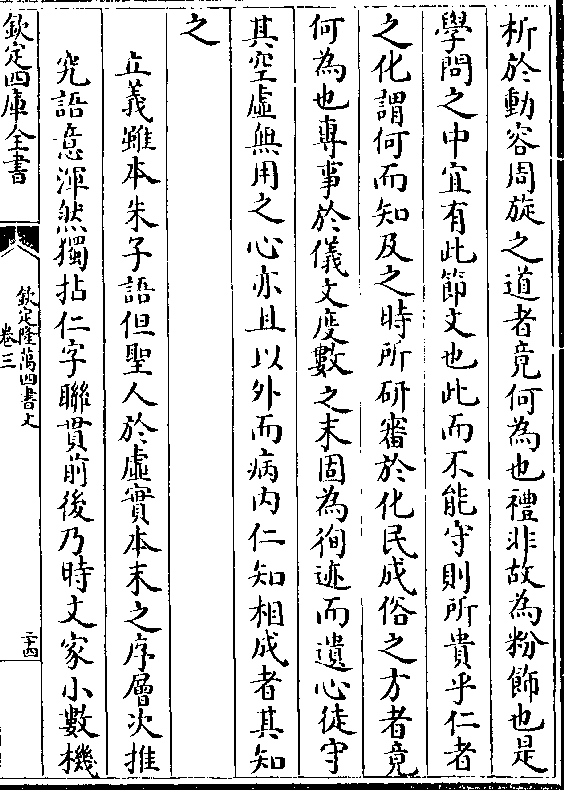 析於動容周旋之道者竟何為也禮非故為粉飾也是
學問之中宜有此節文也此而不能守則所貴乎仁者
之化謂何而知及之時所研審於化民成俗之方者竟
何為也專事於儀文度數之末固為徇迹而遺心徒守
其空虛無用之心亦且以外而病內仁知相成者其知
之
立義雖本朱子語但聖人於虛實本末之序層次推
究語意渾然獨拈仁字聯貫前後乃時文家小數機
欽定四庫全書
欽定隆萬四書文
卷三
二十四